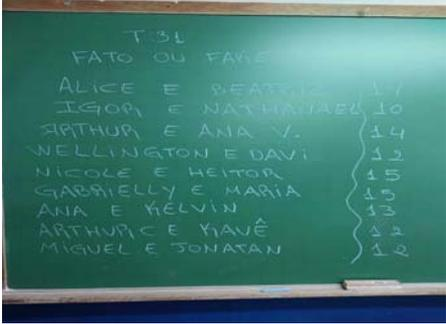 T.31
FATO OU FAKE
ALICE E BEATRIZ
IGOR E NATHANAEL 10
ARTHUR E ANA V. 14
WELLINGTON E DAVI 12
NICOLE E HEITOR 15
GABRIELLY E MARIA 15
ANA E KELVIN 13
ARTHUR C E KAUÊ 12
MIGUEL E JONATAN 12